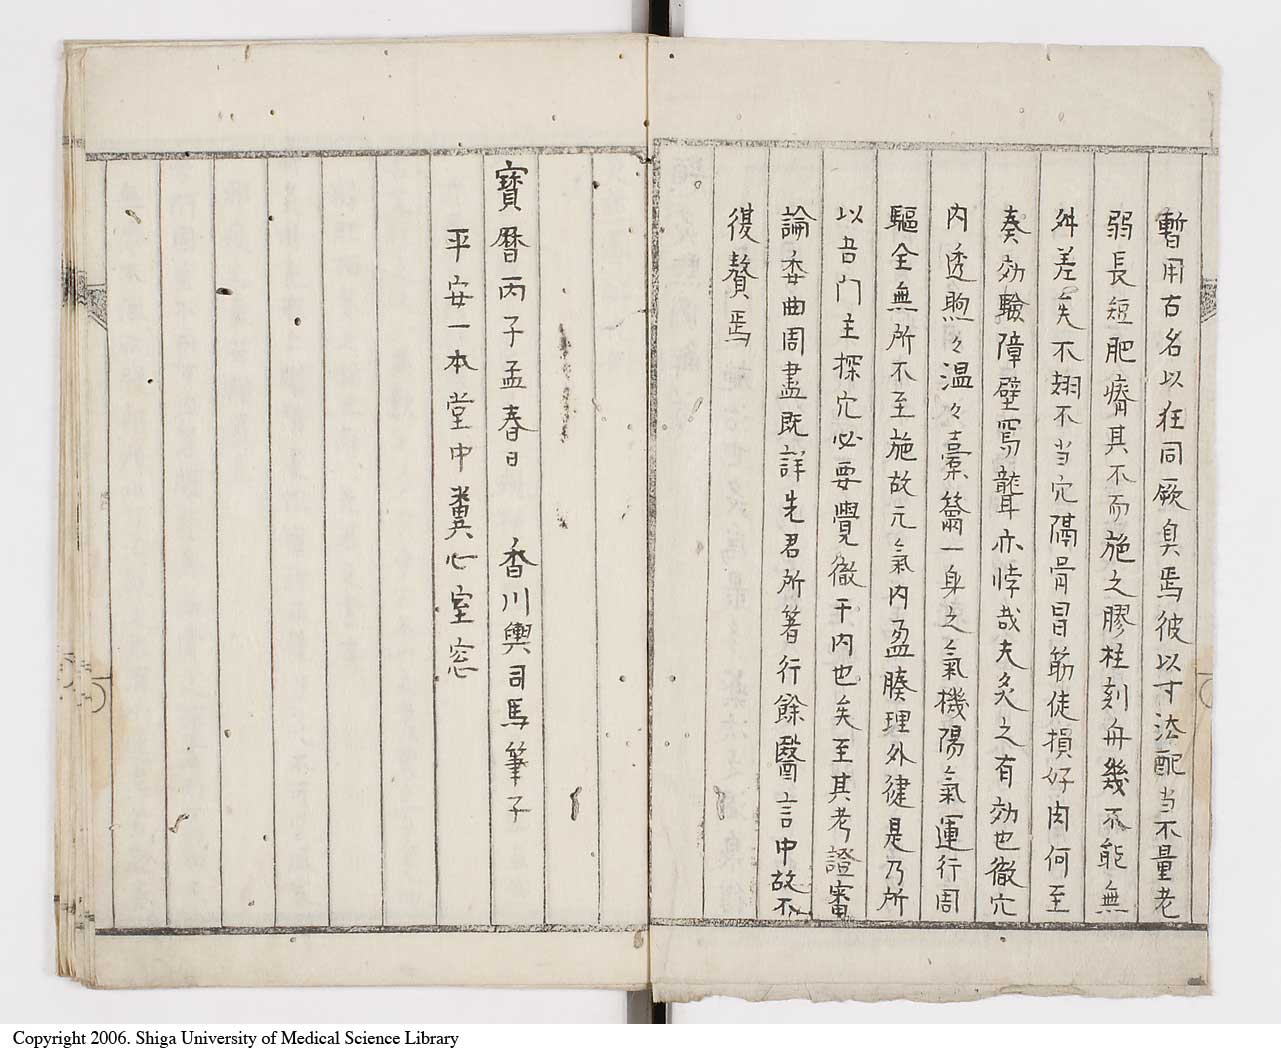 暫用古名以狂同厥臭焉彼以寸法配当不量老
弱長短肥瘠其不而施之膠柱刻舟幾不能無
舛差矣不翅不当穴隔骨冒筋徒損好肉何至
奏効驗障壁窵聾亦悖哉夫灸之有効也徹穴
内透煦々温々橐籥一身之氣機陽氣運行周
驅全無所不至施故元氣内盈腠理外健是乃所
以吾门主探穴必要覺徹于内也矣至其考證審
論委曲周盡既詳先君所著行餘醫言中故不
復贅焉
寶曆丙子孟春日 香川輿司馬筆子
平安一本堂中糞心室窓
Copyright 2006. Shiga University of Medical Science Library